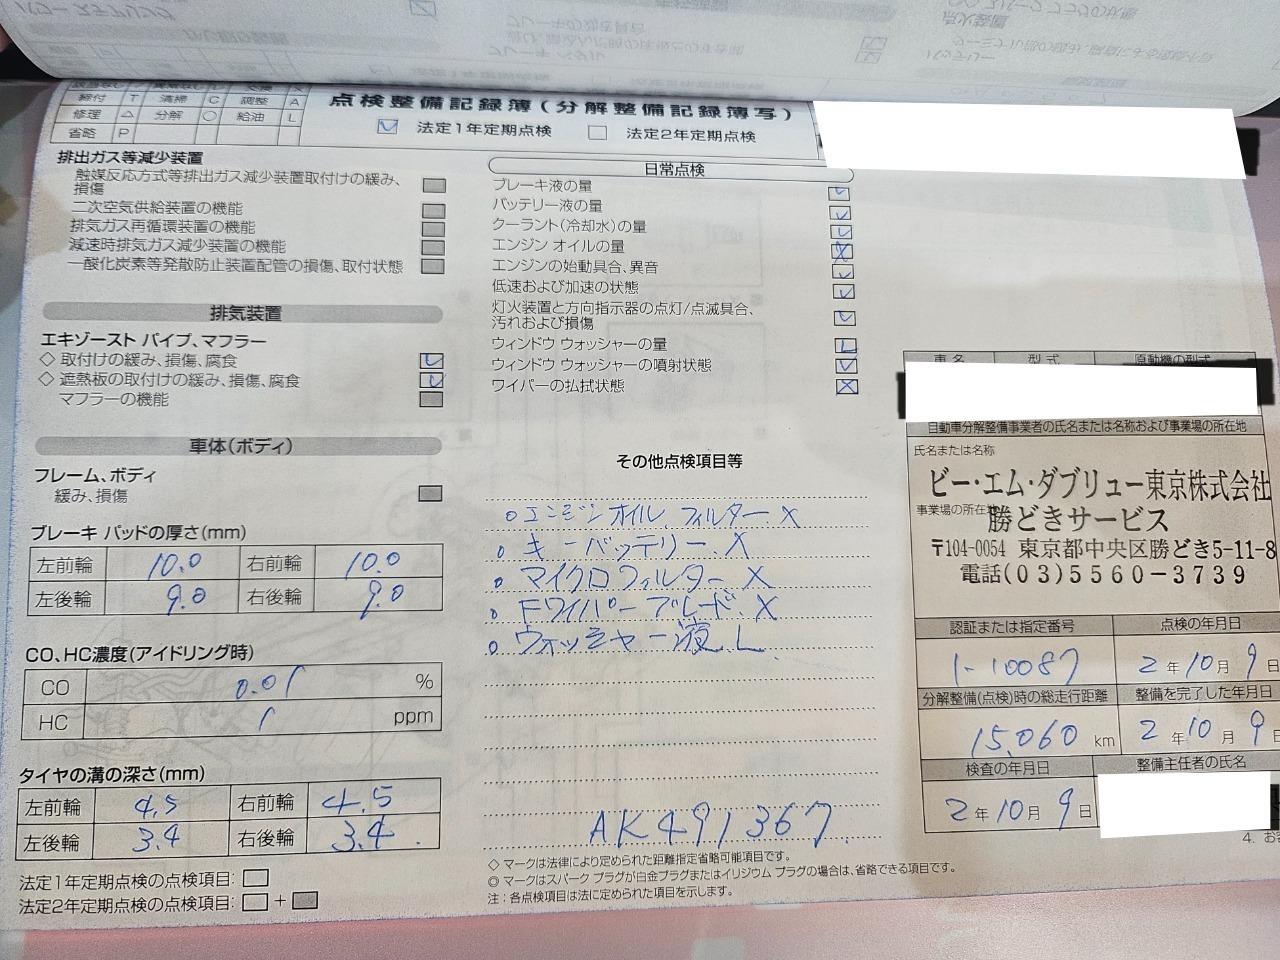 締付 T 清掃 C 調整 A
修理 △ 分解 ○ 給油 L
省略 P
点検整備記録簿(分解整備記録簿写)
法定1年定期点検 法定2年定期点検
排出ガス等減少装置
触媒反応方式等排出ガス減少装置取付けの緩み、
損傷
二次空気供給装置の機能
排気ガス再循環装置の機能
減速時排気ガス減少装置の機能
一酸化炭素等発散防止装置配管の損傷、取付状態
排気装置
エキゾースト パイプ、マフラー
◇ 取付けの緩み、損傷、腐食
◇ 遮熱板の取付けの緩み、損傷、腐食
マフラーの機能
車体(ボディ)
フレーム、ボディ
緩み、損傷
ブレーキ パッドの厚さ(mm)
左前輪 10.0 右前輪 10.0
左後輪 9.0 右後輪 9.0
CO、HC濃度(アイドリング時)
CO 0.01 %
HC 1 ppm
タイヤの溝の深さ(mm)
左前輪 4.5 右前輪 4.5
左後輪 3.4 右後輪 3.4
法定1年定期点検の点検項目:
法定2年定期点検の点検項目: +
日常点検
ブレーキ液の量
バッテリー液の量
クーラント(冷却水)の量
エンジン オイルの量
エンジンの始動具合、異音
低速および加速の状態
灯火装置と方向指示器の点灯/点滅具合、
汚れおよび損傷
ウィンドウ ウォッシャーの量 L
ウィンドウ ウォッシャーの噴射状態
ワイパーの払拭状態 X
その他点検項目等
○エンジンオイル、フィルター X
○ キーバッテリー X
○ マイクロフィルター X
○ Fワイパーブレード X
○ ウォッシャー液 L
AK491367
◇ マークは法律により定められた距離指定省略可能項目です。
◎ マークはスパーク プラグが白金プラグまたはイリジウム プラグの場合は、省略できる項目です。
注: 各点検項目は法に定められた項目を示します。
車名 型式 原動機の型式
自動車分解整備事業者の氏名または名称および事業場の所在地
氏名または名称
ビー・エム・ダブリュー東京株式会社
事業場の所在地
勝どきサービス
〒104-0054 東京都中央区勝どき5-11-8
電話(03)5560-3739
認証または指定番号 点検の年月日
1-10087 2年10月9日
分解整備(点検)時の総走行距離 整備を完了した年月日
15,060 km 2年10月9日
検査の年月日 整備主任者の氏名
2年10月9日
4. お客